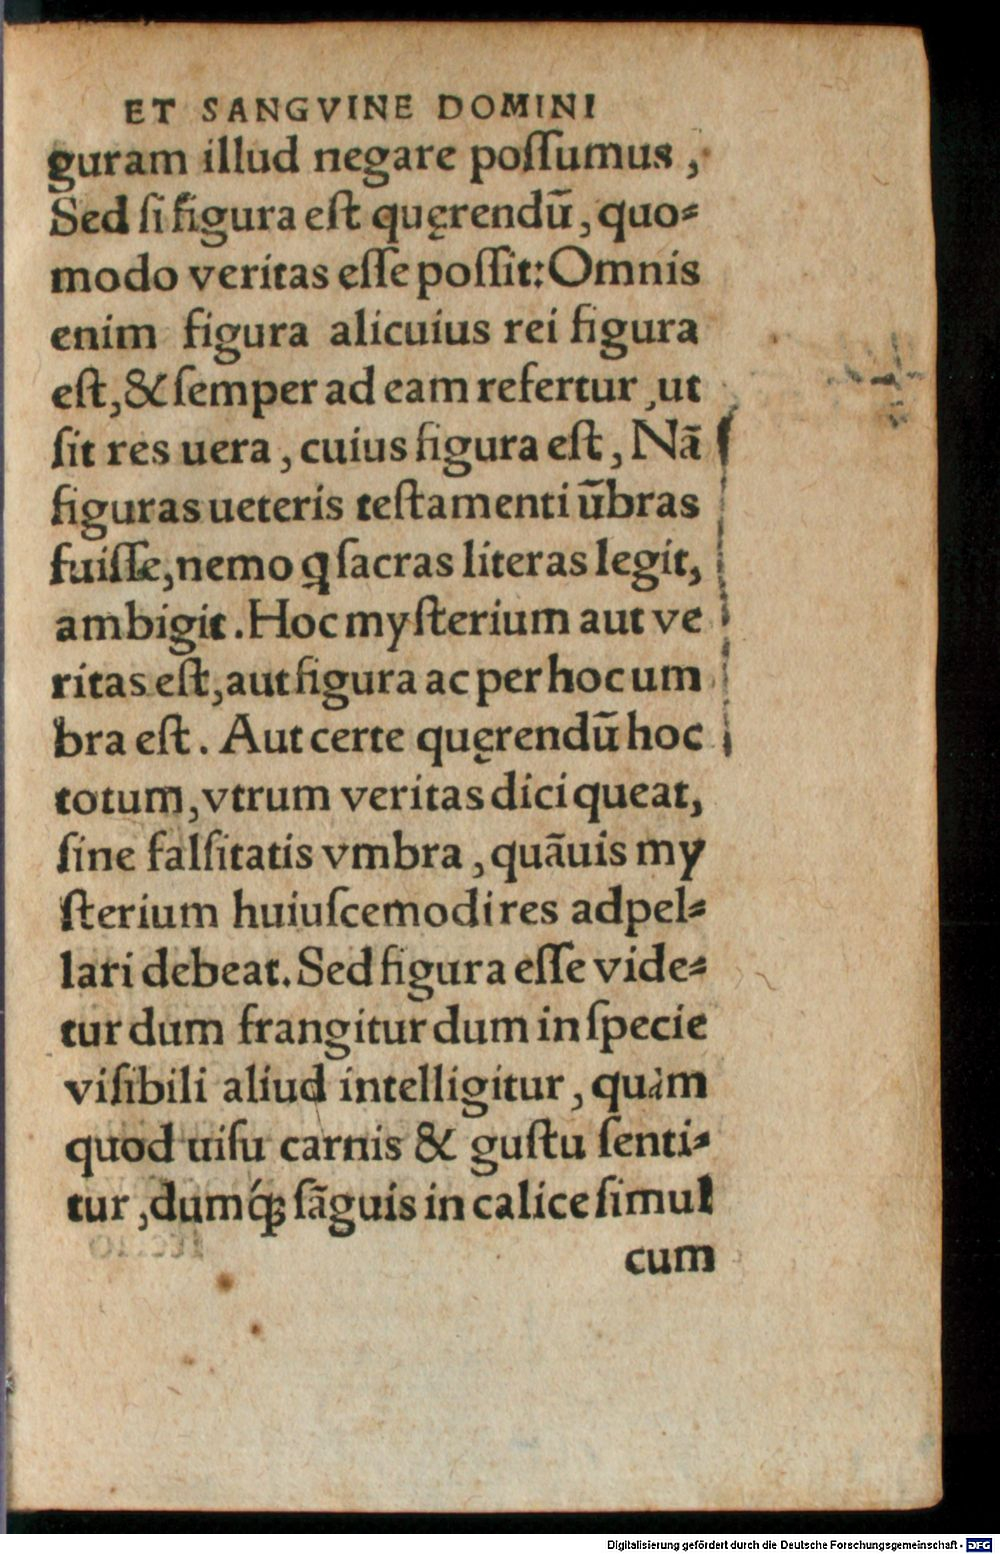 ET SANGVINE DOMINI
guram illud negare poſſumus,
Sed ſi figura eſt quęrendū, quo⸗
modo veritas eſſe poſſit: Omnis
enim figura alicuius rei figura
eſt, & ſemper ad eam refertur, ut
ſit res uera, cuius figura eſt, Nā
figuras ueteris teſtamenti ūbras
fuiſſe, nemo ꝗ ſacras literas legit,
ambigit. Hoc myſterium aut ve
ritas eſt, aut figura ac per hoc um
bra eſt. Aut certe quęrendū hoc
totum, vtrum veritas dici queat,
ſine falſitatis vmbra, quāuis my
ſterium huiuſcemodi res adpel⸗
lari debeat. Sed figura eſſe vide⸗
tur dum frangitur dum in ſpecie
viſibili aliud intelligitur, quàm
quod uiſu carnis & guſtu ſenti⸗
tur, dumq́ꝫ ſāguis in calice ſimul
cum
Digitalisierung gefördert durch die Deutsche Forschungsgemeinschaft - DFG